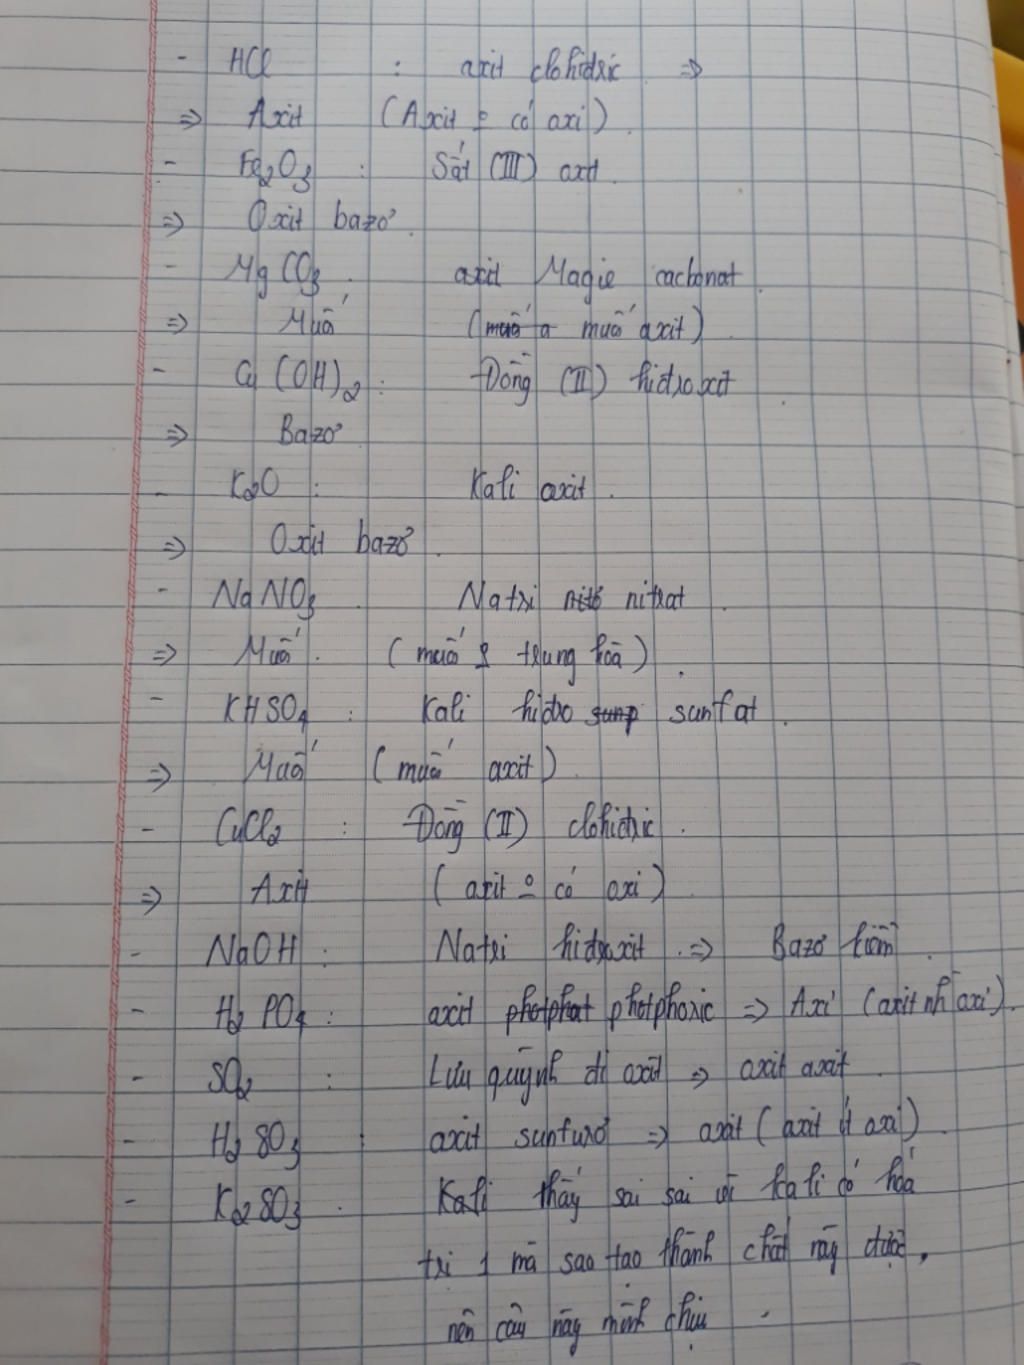 - HCl : axit clohidric ⇒
⇒ Axit (Axit o có oxi).
- Fe2O3 : Sắt (III) oxit.
⇒ Oxit bazơ.
- MgCO3 . axit Magie cacbonat.
⇒ Muối (muối a muối axit).
- Cu(OH)2 : Đồng (II) hidroxit.
⇒ Bazơ
- K2O : Kali oxit.
⇒ Oxit bazơ.
- NaNO3 Natri nitơ nitrat.
⇒ Muối. (muối trung hòa).
- KHSO4 : Kali hidro sunp sunfat.
⇒ Muối (muối axit).
- CuCl2 : Đồng (II) clohidric.
⇒ Axit (axit o có oxi)
- NaOH : Natri hidroxit. ⇒ Bazơ kiềm.
- H2PO4 : axit photphat photphoric ⇒ Axi (axit nh` oxi).
- SO2 : Lưu quỳnh đi oxit ⇒ oxit axit
- H2SO3 : axit sunfurơ ⇒ axit (axit ít oxi).
- K2SO3 . Kali thấy sai sai vì kali có hóá
trị 1 mà sao tạo thành chất này được,
nên câu này mình chịu.